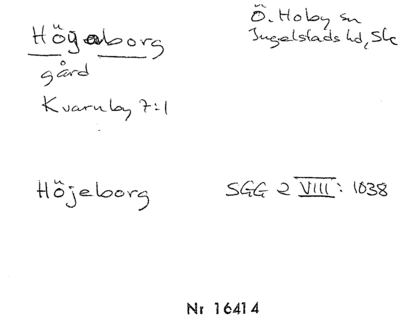 Högaborg
Ö. Hoby sn
Ingelstads hd, Sk
gård
Kvarnby 7:1
Höjeborg
SGG 2 VIII: 1038
Nr 16414